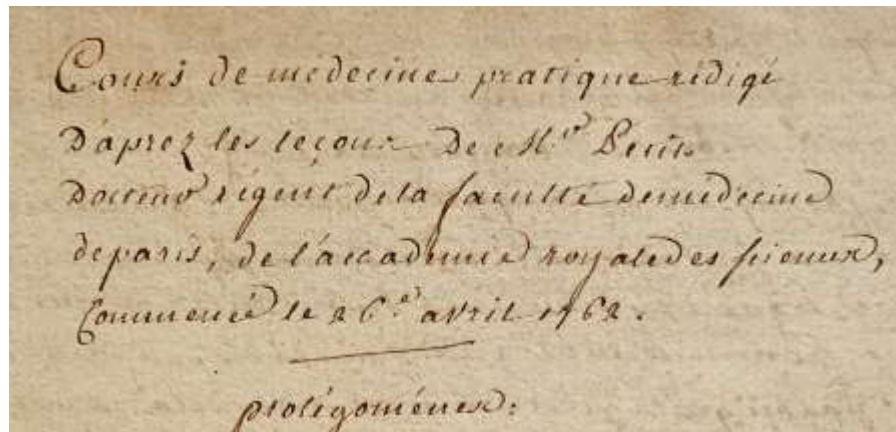 Cours de médecine pratique rédigé
D'aprez les leçons De Mr Petit
Docteur régent de la faculté de médecine
de paris, de l'accademie royale des sciences,
Commencé le 26e avril 1762.
prolégomènes: